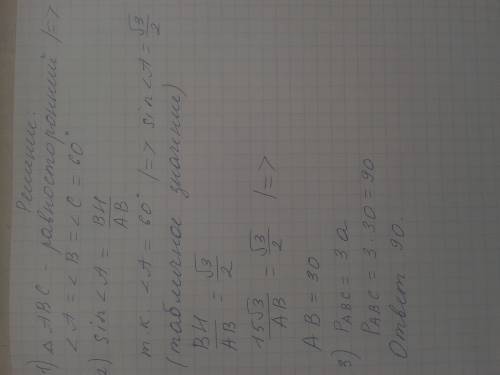 Решение:
1) △ ABC - равносторонний |=>
∠A = ∠B = ∠C = 60°
2) sin∠A = BH/AB
т.к. ∠A = 60° |=> sin∠A = √3/2
(табличное значение)
BH/AB = √3/2
15√3/AB = √3/2 |=>
AB = 30
3) P_ABC = 3a
P_ABC = 3·30 = 90
Ответ 90.